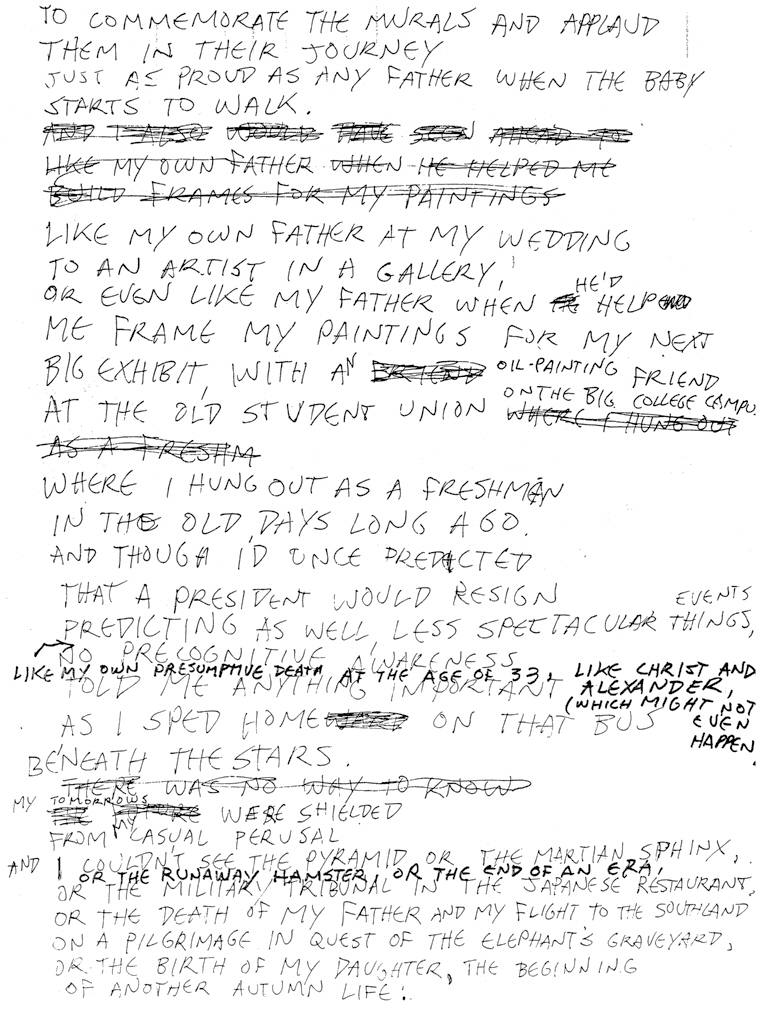 TO COMMEMORATE THE MURALS AND APPLAUD
THEM IN THEIR JOURNEY
JUST AS PROUD AS ANY FATHER WHEN THE BABY
STARTS TO WALK.
AND I ALSO WOULD HAVE SEEN AHEAD TO
LIKE MY OWN FATHER WHEN HE HELPED ME
BUILD FRAMES FOR MY PAINTINGS
LIKE MY OWN FATHER AT MY WEDDING
TO AN ARTIST IN A GALLERY,
HE'D
OR EVEN LIKE MY FATHER WHEN HELP
ME FRAME MY PAINTINGS FOR MY NEXT
BIG EXHIBIT, WITH AN FRIEND OIL-PAINTING FRIEND
AT THE OLD STUDENT UNION ON THE BIG COLLEGE CAMPU
WHERE I HUNG OUT
AS A FRESHM
WHERE I HUNG OUT AS A FRESHMAN
IN THE OLD DAYS LONG AGO.
AND THOUGH I'D ONCE PREDICTED
THAT A PRESIDENT WOULD RESIGN
EVENTS
PREDICTING AS WELL, LESS SPECTACULAR THINGS,
NO PRECOGNITIVE AWARENESS
LIKE MY OWN PRESUMPTIVE DEATH AT THE AGE OF 33, LIKE CHRIST AND
ALEXANDER,
TOLD ME ANYTHING IMPORTANT
(WHICH MIGHT NOT
EVEN
HAPPEN
AS I SPED HOME ON THAT BUS
BENEATH THE STARS.
THERE WAS NO WAY TO KNOW
MY TOMORROWS
WERE SHIELDED
FROM MY CASUAL PERUSAL
AND I COULDN'T SEE THE PYRAMID OR THE MARTIAN SPHINX,
OR THE RUNAWAY HAMSTER, OR THE END OF AN ERA,
OR THE MILITARY TRIBUNAL IN THE JAPANESE RESTAURANT,
OR THE DEATH OF MY FATHER AND MY FLIGHT TO THE SOUTHLAND
ON A PILGRIMAGE IN QUEST OF THE ELEPHANT'S GRAVEYARD,
OR THE BIRTH OF MY DAUGHTER, THE BEGINNING
OF ANOTHER AUTUMN LIFE.